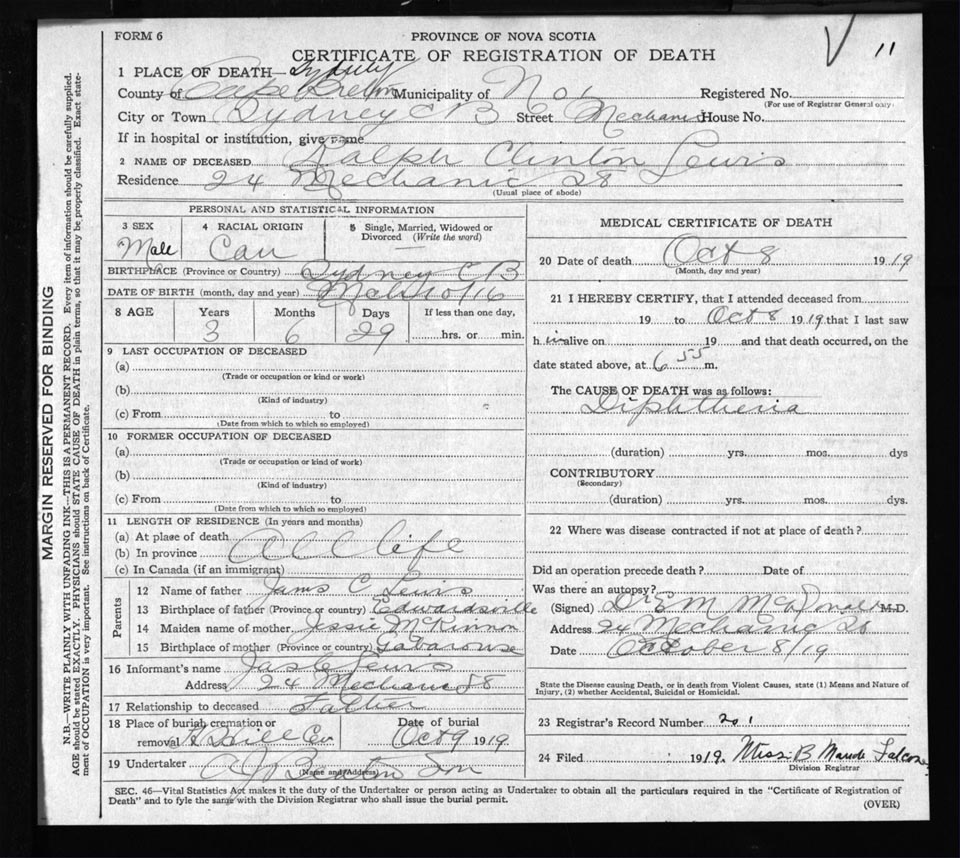 FORM 6
PROVINCE OF NOVA SCOTIA
CERTIFICATE OF REGISTRATION OF DEATH
11
1 PLACE OF DEATH— Sydney
County of Cape Breton Municipality of No 1 Registered No.
(For use of Registrar General only)
City or Town Sydney C B Street Mechanic House No.
If in hospital or institution, give name
2 NAME OF DECEASED Ralph Clinton Lewis
Residence 24 Mechanic
(Usual place of abode)
PERSONAL AND STATISTICAL INFORMATION
3 SEX
Male
4 RACIAL ORIGIN
Can
5 Single, Married, Widowed or
Divorced (Write the word)
—
BIRTHPLACE (Province or Country) Sydney C B
DATE OF BIRTH (month, day and year) Mch 10/16
8 AGE Years Months Days If less than one day,
3 6 29 hrs. or min.
9 LAST OCCUPATION OF DECEASED
(a)
(Trade or occupation or kind or work)
(b)
(Kind of industry)
(c) From to
(Date from which to which so employed)
10 FORMER OCCUPATION OF DECEASED
(a)
(Trade or occupation or kind of work)
(b)
(Kind of industry)
(c) From to
(Date from which to which so employed)
11 LENGTH OF RESIDENCE (In years and months)
(a) At place of death
(b) In province All Life
(c) In Canada (if an immigrant)
Parents
12 Name of father James C Lewis
13 Birthplace of father (Province or country) Edwardsville
14 Maiden name of mother Jessie McKinnon
15 Birthplace of mother (Province or country) Gabarouse
16 Informant's name Jas C Lewis
Address 24 Mechanic
17 Relationship to deceased Father
18 Place of burial, cremation or
removal H Hill Cem
Date of burial
Oct 9 1919
19 Undertaker A J Beaton Son
(Name and Address)
MEDICAL CERTIFICATE OF DEATH
20 Date of death Oct 8 1919
(Month, day and year)
21 I HEREBY CERTIFY, that I attended deceased from
19 to Oct 8 1919 that I last saw
him alive on 19 and that death occurred, on the
date stated above, at 6 55 m.
The CAUSE OF DEATH was as follows:
Diphtheria
(duration) yrs. mos. dys
CONTRIBUTORY
(Secondary)
(duration) yrs. mos. dys.
22 Where was disease contracted if not at place of death?
Did an operation precede death? Date of
Was there an autopsy?
(Signed) Dr E M McDonald M.D.
Address 24 Mechanic
Date October 8/19
State the Disease causing Death, or in death from Violent Causes, state (1) Means and Nature of
Injury, (2) whether Accidental, Suicidal or Homicidal.
23 Registrar's Record Number 201
24 Filed 1919. Miss B Maude
Division Registrar
SEC. 46—Vital Statistics Act makes it the duty of the Undertaker or person acting as Undertaker to obtain all the particulars required in the "Certificate of Registration of
Death" and to fyle the same with the Division Registrar who shall issue the burial permit.
(OVER)
MARGIN RESERVED FOR BINDING
N.B.—WRITE PLAINLY WITH UNFADING INK—THIS IS A PERMANENT RECORD. Every item of information should be carefully supplied.
AGE should be stated EXACTLY. PHYSICIANS should STATE CAUSE OF DEATH in plain terms, so that it may be properly classified. Exact state-
ment of OCCUPATION is very important. See instructions on back of Certificate.